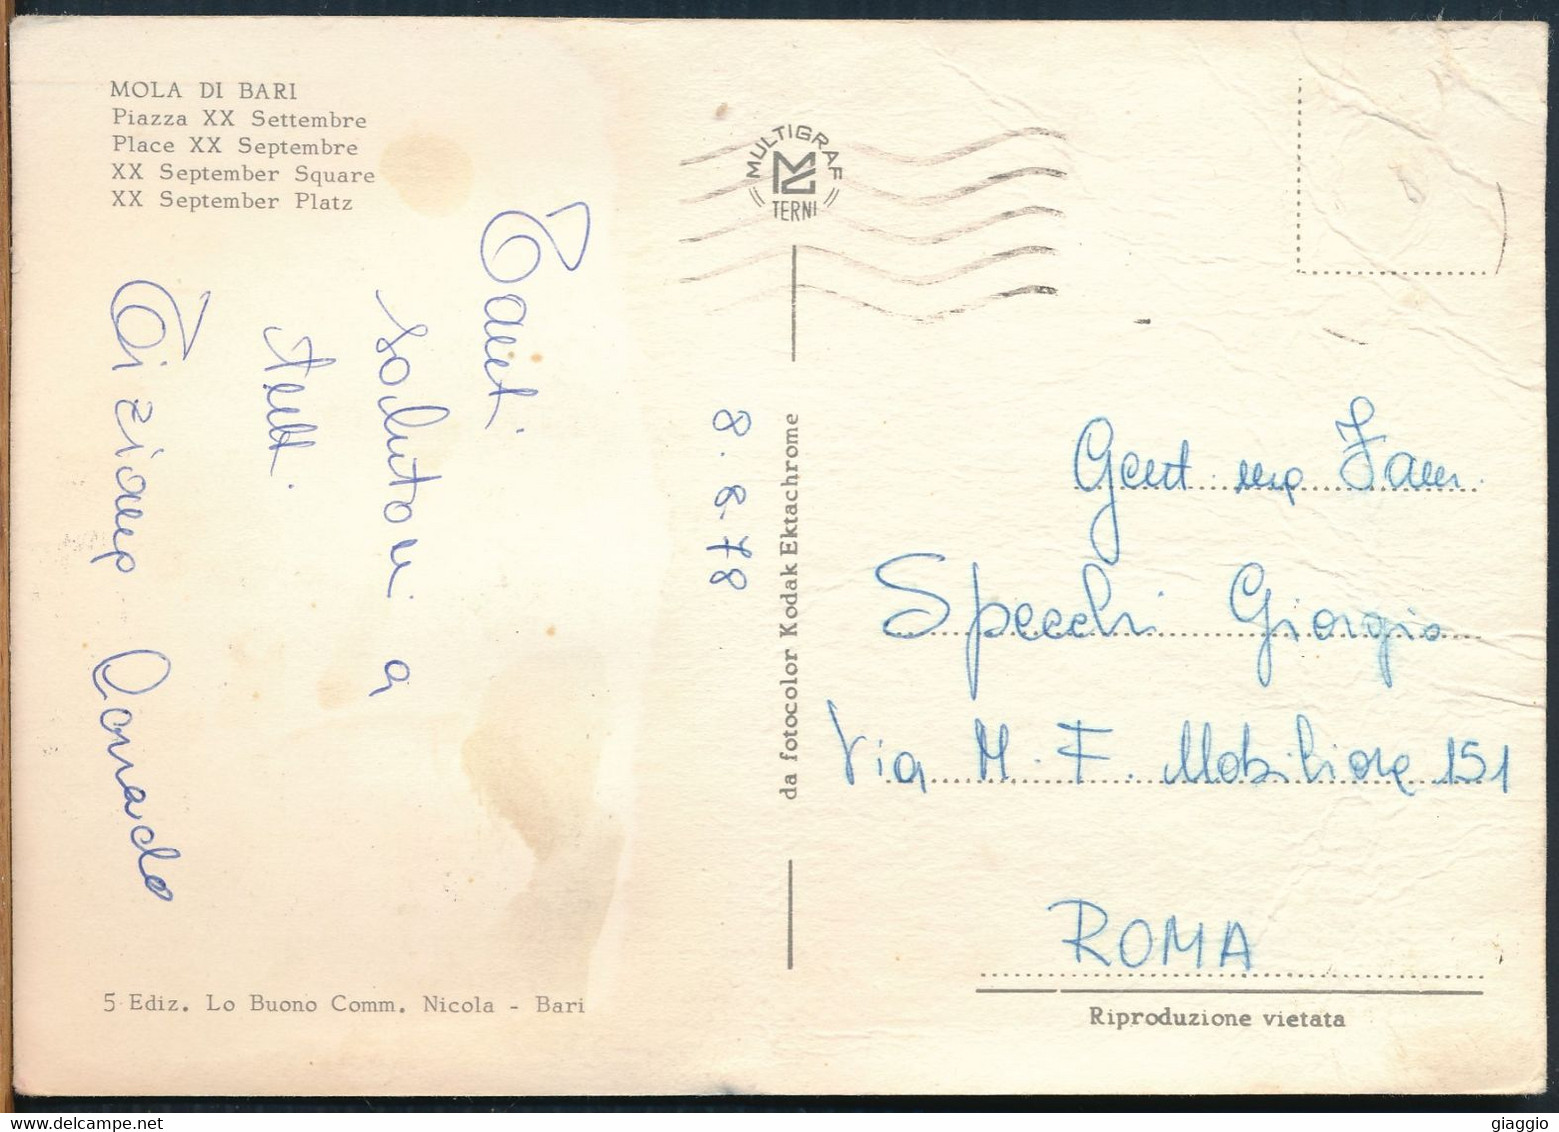 MOLA DI BARI
Piazza XX Settembre
Place XX Septembre
XX September Square
XX September Platz
Tanti
salutoni a
tutti.
Tiziana Corrado
5 Ediz. Lo Buono Comm. Nicola - Bari
MULTIGRAF
TERNI
8.6.78
da fotocolor Kodak Ektachrome
Gent.ma Fam.
Specchi Giorgio
Via M. F. Nobiliore 151
ROMA
Riproduzione vietata
giaggio